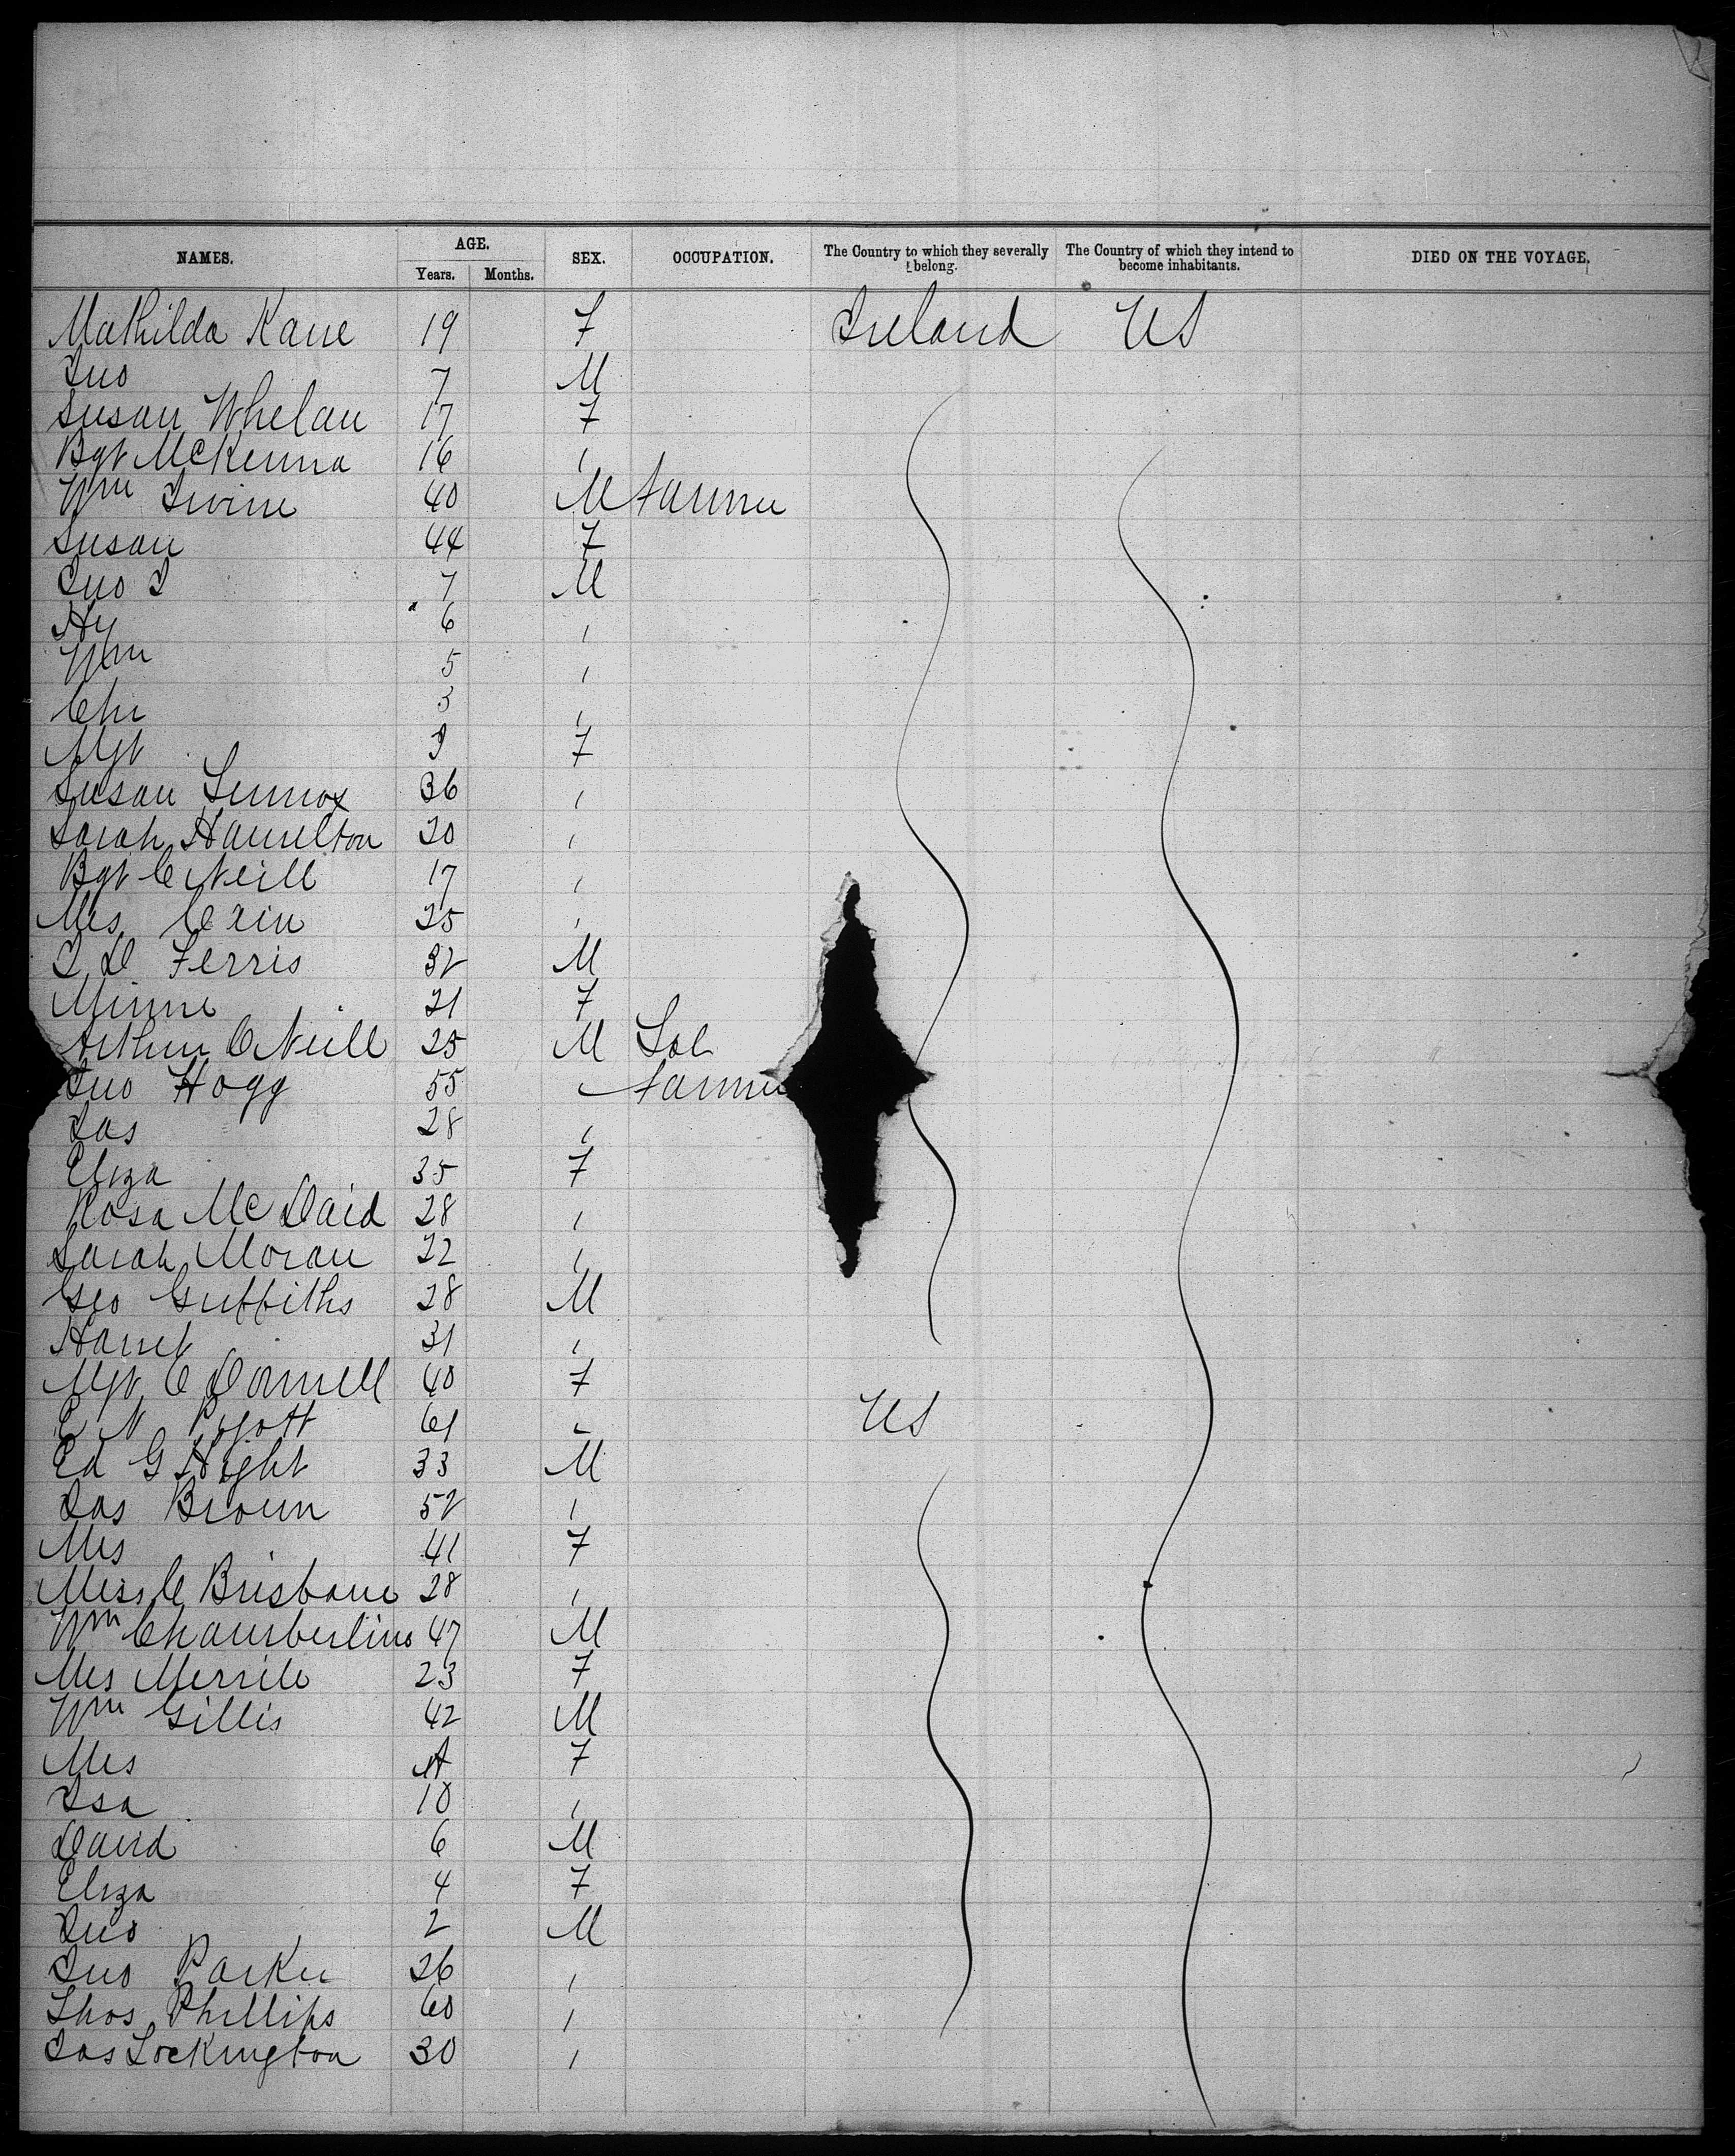 NAMES. AGE. SEX. OCCUPATION. The Country to which they severally belong. The Country of which they intend to become inhabitants. DIED ON THE VOYAGE.
Years. Months.
Mathilda Kane 19 F Ireland US
Jno 7 M
Susan Whelan 17 F
Bgt McKenna 16 "
Wm Irvine 40 M Farmer
Susan 44 F
Jno I 7 M
Hy 6 "
Wm 5 "
Chr 3 "
Mgt 9 F
Susan Lennox 36 "
Sarah Hamilton 20 "
Bgt O'Neill 17 "
Mrs 25 "
J D Ferris 32 M
Minnie 21 F
Arthur O'Neill 25 M Lab
Jno Hogg 55 " Farmer
Jas 28 "
Eliza 35 F
Rosa McDaid 28 "
Sarah Moran 22 "
Geo Griffiths 28 M
Harriet 31 "
Mgt O'Donnell 40 F
E N Pyott 61 " US
Ed G Hight 33 M
Jas Brown 52 "
Mrs 41 F
Miss C Brisbane 28 "
Wm Chamberlin 47 M
Mrs Merrile 23 F
Wm Gillis 42 M
Mrs F
Isa 10 "
David 6 M
Eliza 4 F
Jno 2 M
Jno Parker 26 "
Thos Phillips 60 "
Jas Lockington 30 "